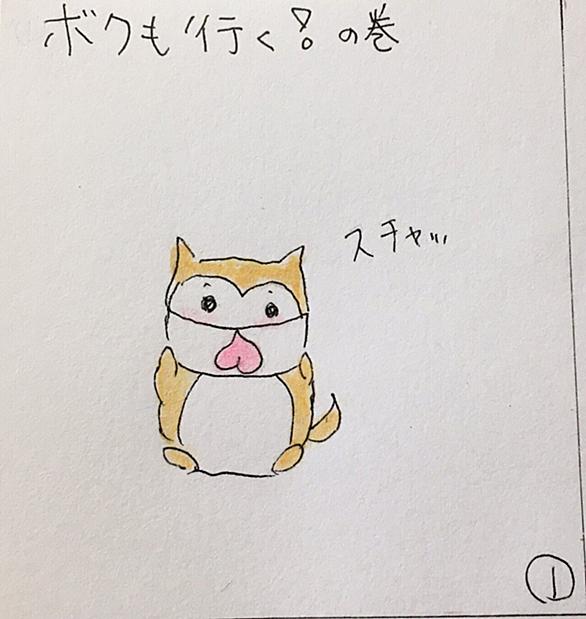 ボクも行く!の巻
スチャッ
①